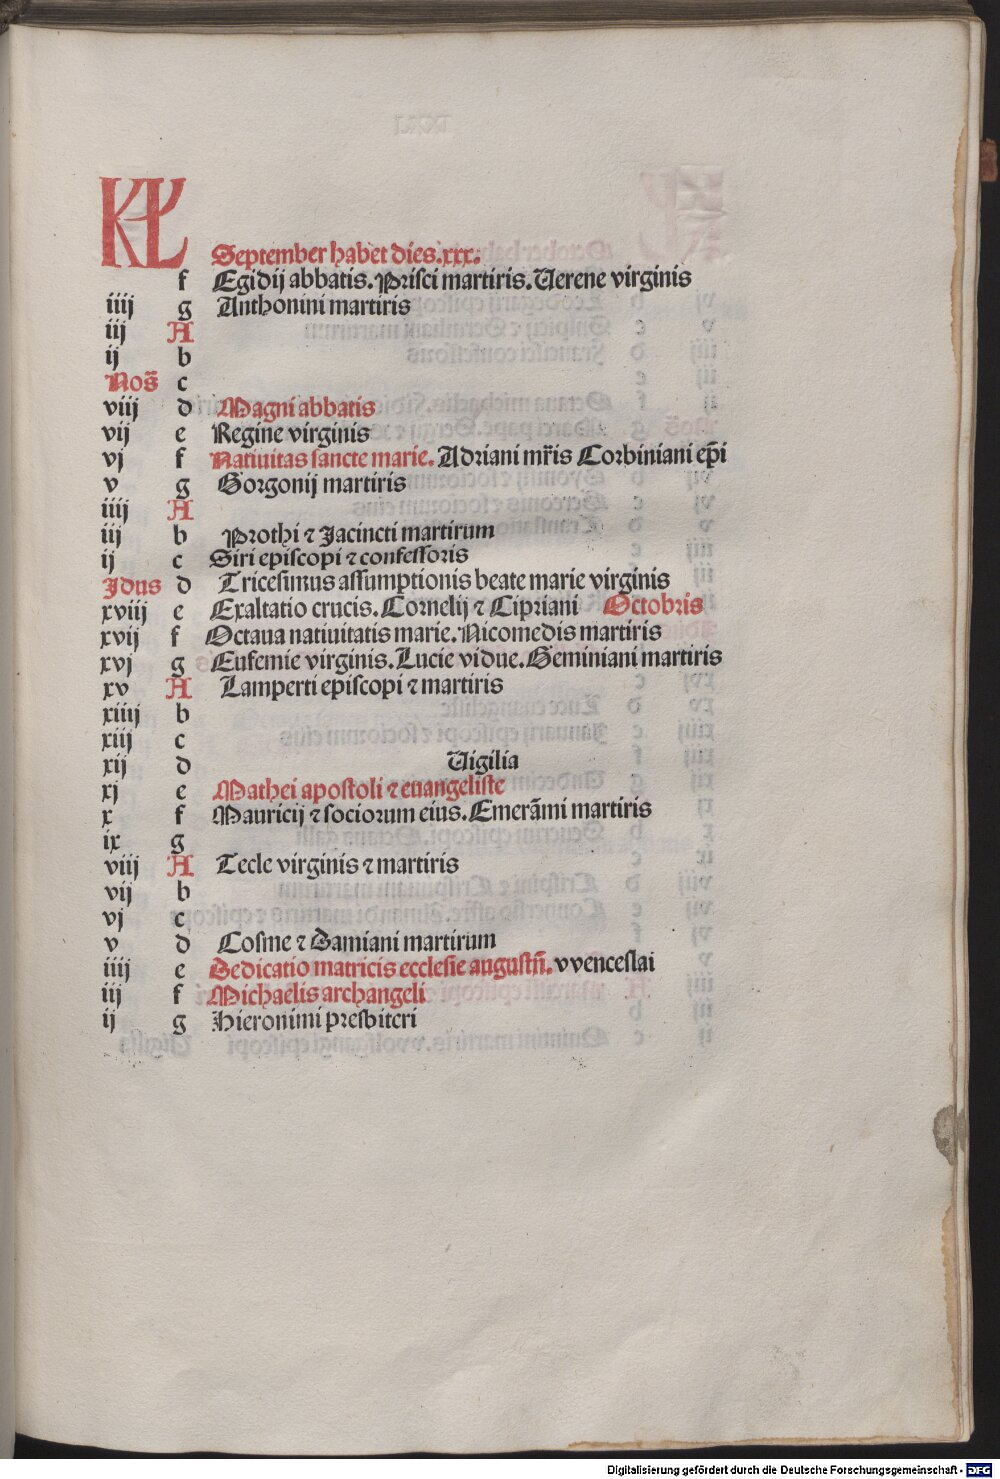 KL September habet dies.xxx:
f Egidij abbatis. Prisci martiris. Uerene virginis
iiij g Anthonini martiris
iij A
ij b
Nōs c
viij d Magni abbatis
vij e Regine virginis
vj f Natiuitas sancte marie. Adriani mr̄is Corbiniani ep̄i
v g Gorgonij martiris
iiij A
iij b Prothi ⁊ Jacincti martirum
ij c Siri episcopi ⁊ confessoris
Jdus d Tricesimus assumptionis beate marie virginis
xviij e Exaltatio crucis. Cornelij ⁊ Cipriani Octobris
xvij f Octaua natiuitatis marie. Nicomedis martiris
xvj g Eufemie virginis. Lucie vidue. Geminiani martiris
xv A Lamperti episcopi ⁊ martiris
xiiij b
xiij c
xij d Uigilia
xj e Mathei apostoli ⁊ euangeliste
x f Mauricij ⁊ sociorum eius. Emerāmi martiris
ix g
viij A Tecle virginis ⁊ martiris
vij b
vj c
v d Cosme ⁊ Damiani martirum
iiij e Dedicatio matricis ecclesie augustn̄. vvenceslai
iij f Michaelis archangeli
ij g Hieronimi presbiteri
Digitalisierung gefördert durch die Deutsche Forschungsgemeinschaft - DFG